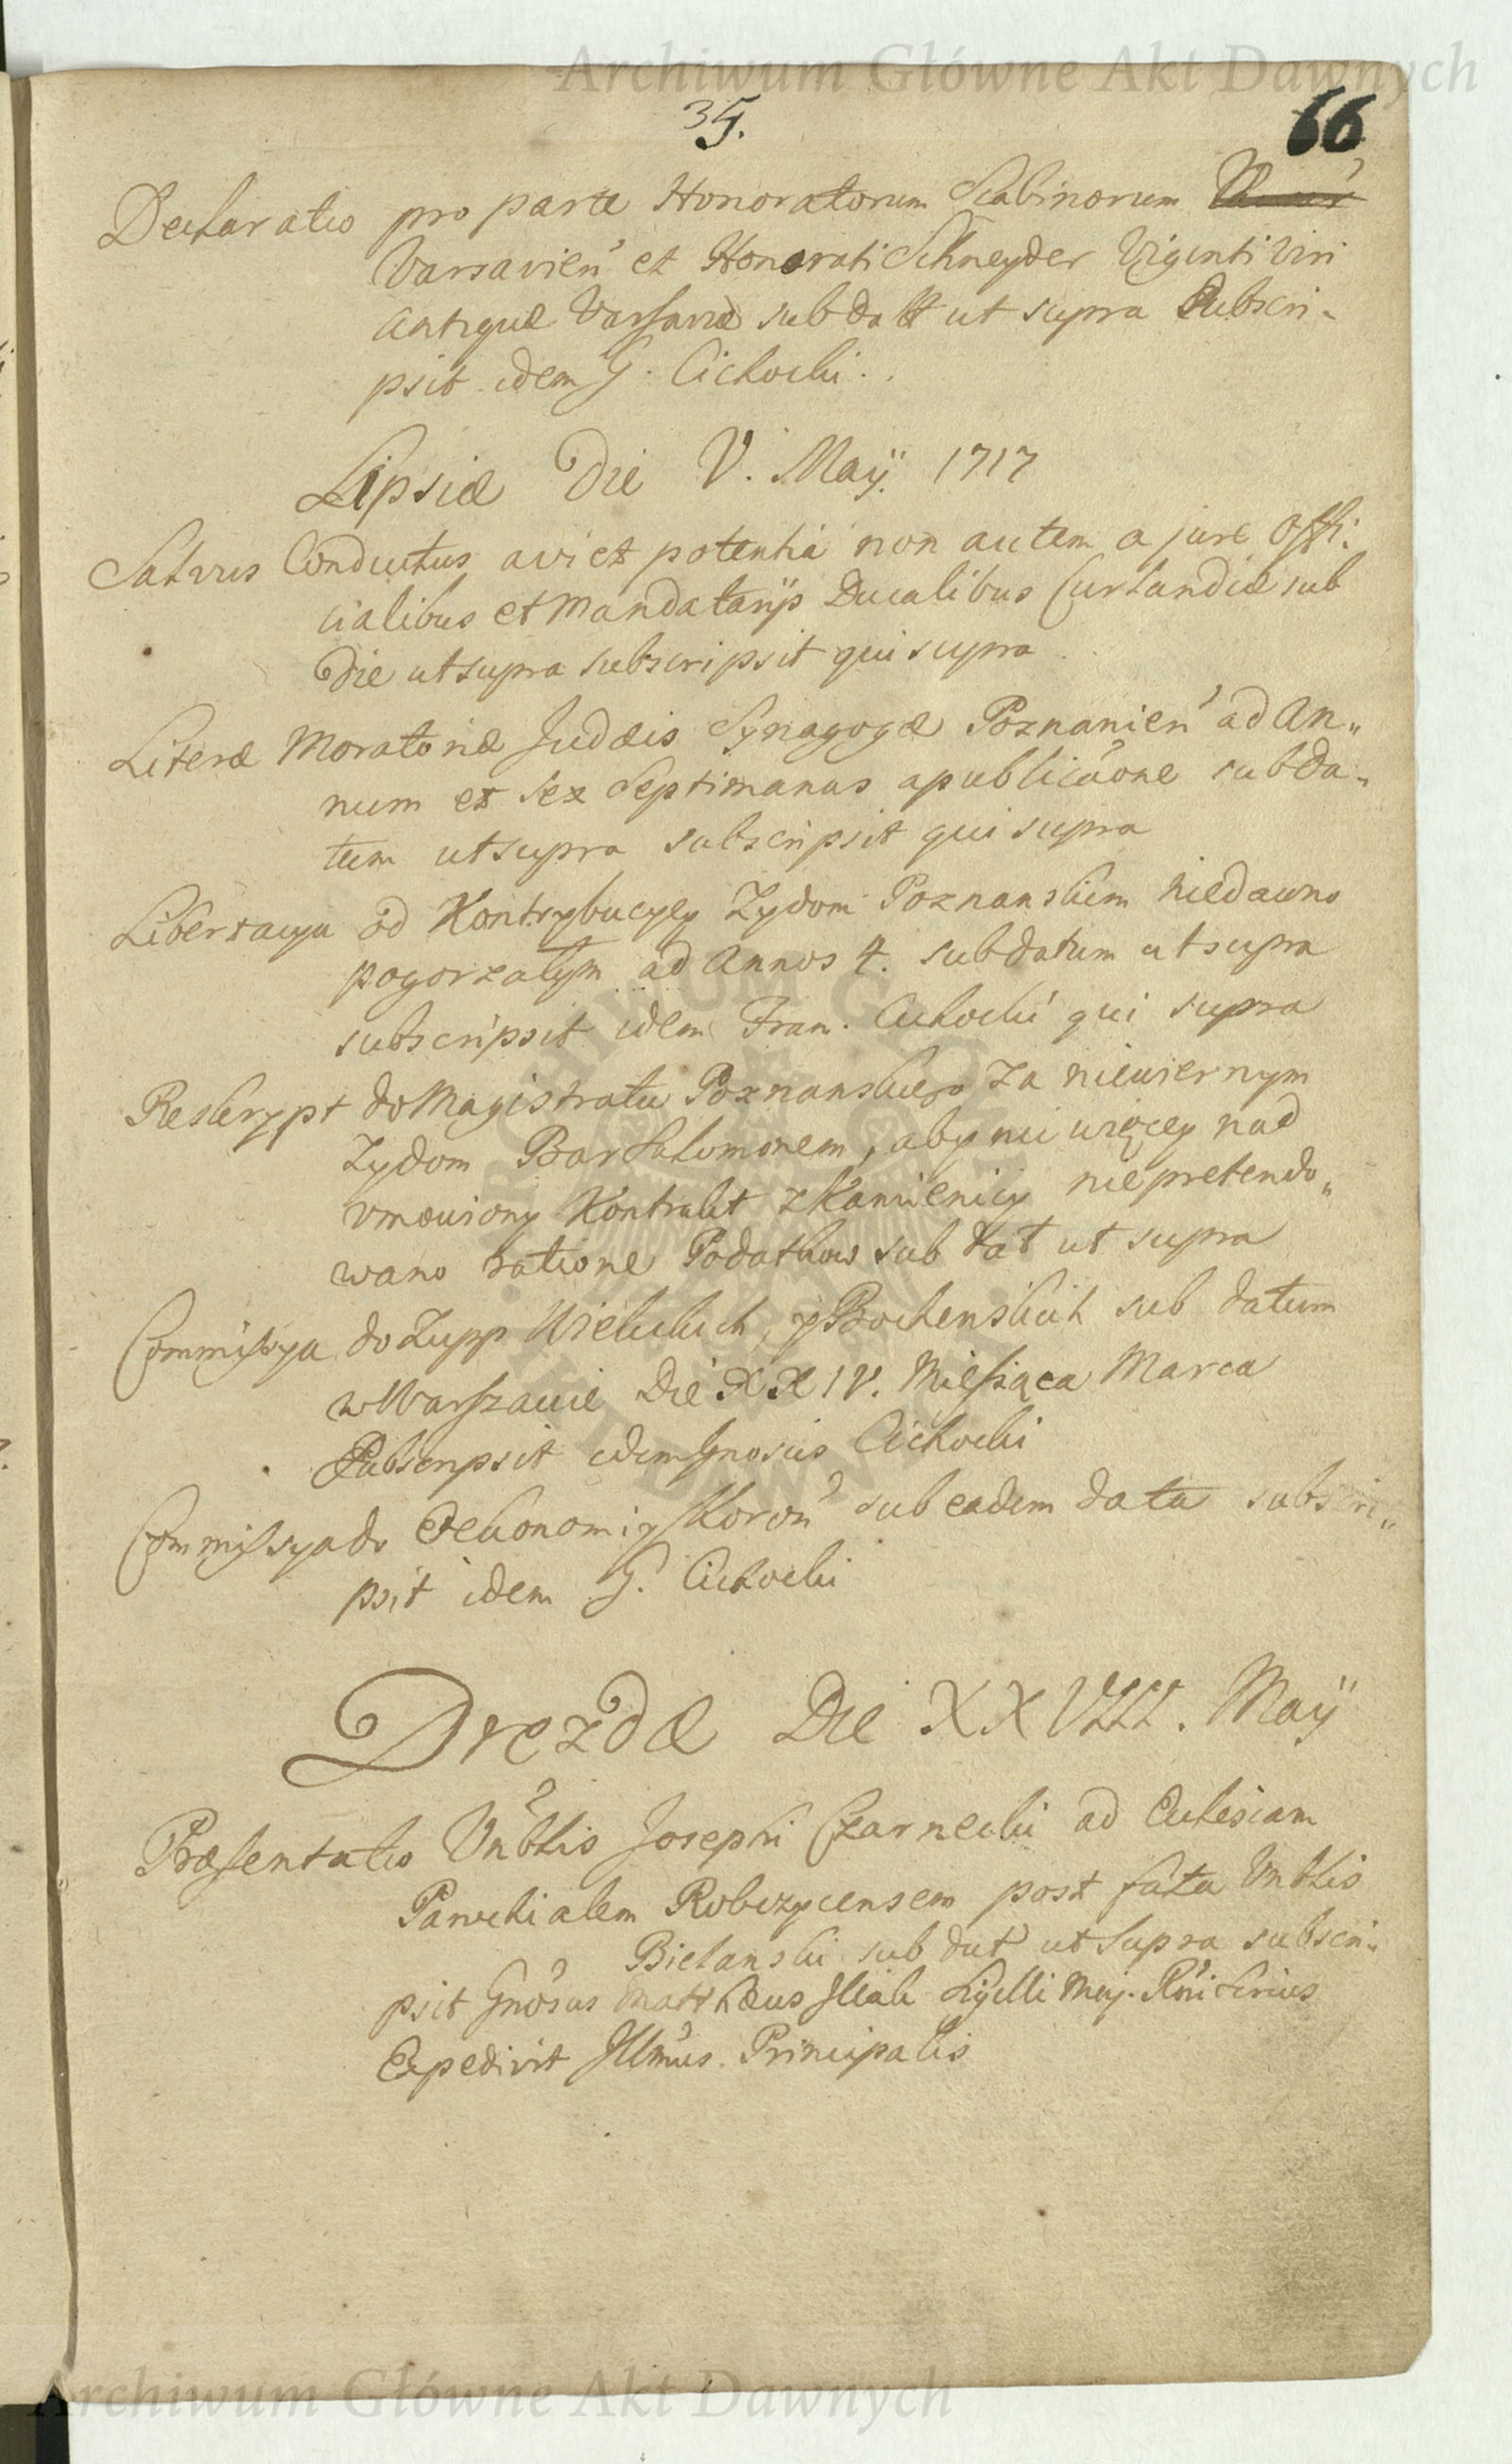 Archiwum Główne Akt Dawnych
35.
66
Declaratio pro parte Honoratorum Scabinorum
Varsavien et Honorati Schneyder Viginti Viri
Antiquæ Varsaviæ sub datt ut supra Subscri-
psit idem G. Cichocki.
Lipsiæ Die V. Maÿ. 1717
Salvus Conductus a vi et potentia non autem a jure Offi:
cialibus et Mandatarÿs Ducalibus Curlandiæ sub
Die ut supra subscripsit qui supra
Literæ Moratoriæ Judæis Synagogæ Poznanien ad An„
num et sex Septimanas a publicaone sub da„
tum ut supra subscripsit qui supra
Libertacya od Kontrybucyey Zydom Poznanskim niedawno
pogorzałym ad Annos 4. sub datum ut supra
subscripsit idem Fran. Cichocki qui supra
Reskrypt do Magistratu Poznanskiego za niewiernym
Zydom Bar Salomonem, aby nic więcey nad
vmowiony Kontrakt z Kamienicy nie pretendo„
wano ratione Podatkow sub dat ut supra
Commissya do Zupp Wielickich, y Bochenskich sub datum
w Warszawie Die XXIV. Miesiąca Marca
Subscripsit idem Gnosus Cichocki
Commissya do Oekonomiy Koron sub eadem data subscri„
psit idem G. Cichocki
Drezdæ Die XXVIII. Maÿ
Præsentatio Vnblis Josephi Czarnecki ad Eclesiam
Parochialem Robczycensem post fata Vnblis
Bielanski sub dat ut Supra subscri-
psit Gnosus Matthæus Sigilli Maj. Rni
Expedivit Illmus Principalis
Archiwum Główne Akt Dawnych